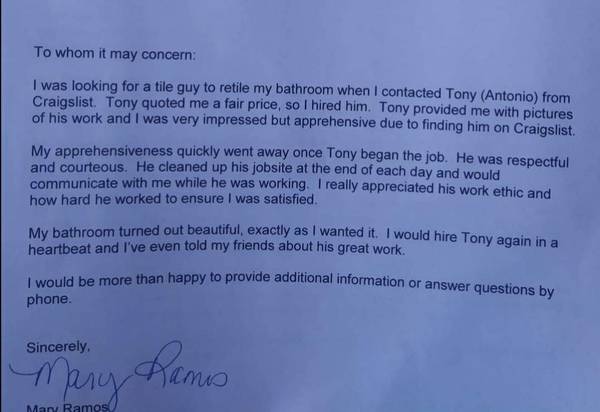 To whom it may concern:
I was looking for a tile guy to retile my bathroom when I contacted Tony (Antonio) from
Craigslist. Tony quoted me a fair price, so I hired him. Tony provided me with pictures
of his work and I was very impressed but apprehensive due to finding him on Craigslist.
My apprehensiveness quickly went away once Tony began the job. He was respectful
and courteous. He cleaned up his jobsite at the end of each day and would
communicate with me while he was working. I really appreciated his work ethic and
how hard he worked to ensure I was satisfied.
My bathroom turned out beautiful, exactly as I wanted it. I would hire Tony again in a
heartbeat and I've even told my friends about his great work.
I would be more than happy to provide additional information or answer questions by
phone.
Sincerely,
Mary Ramos
Mary Ramos